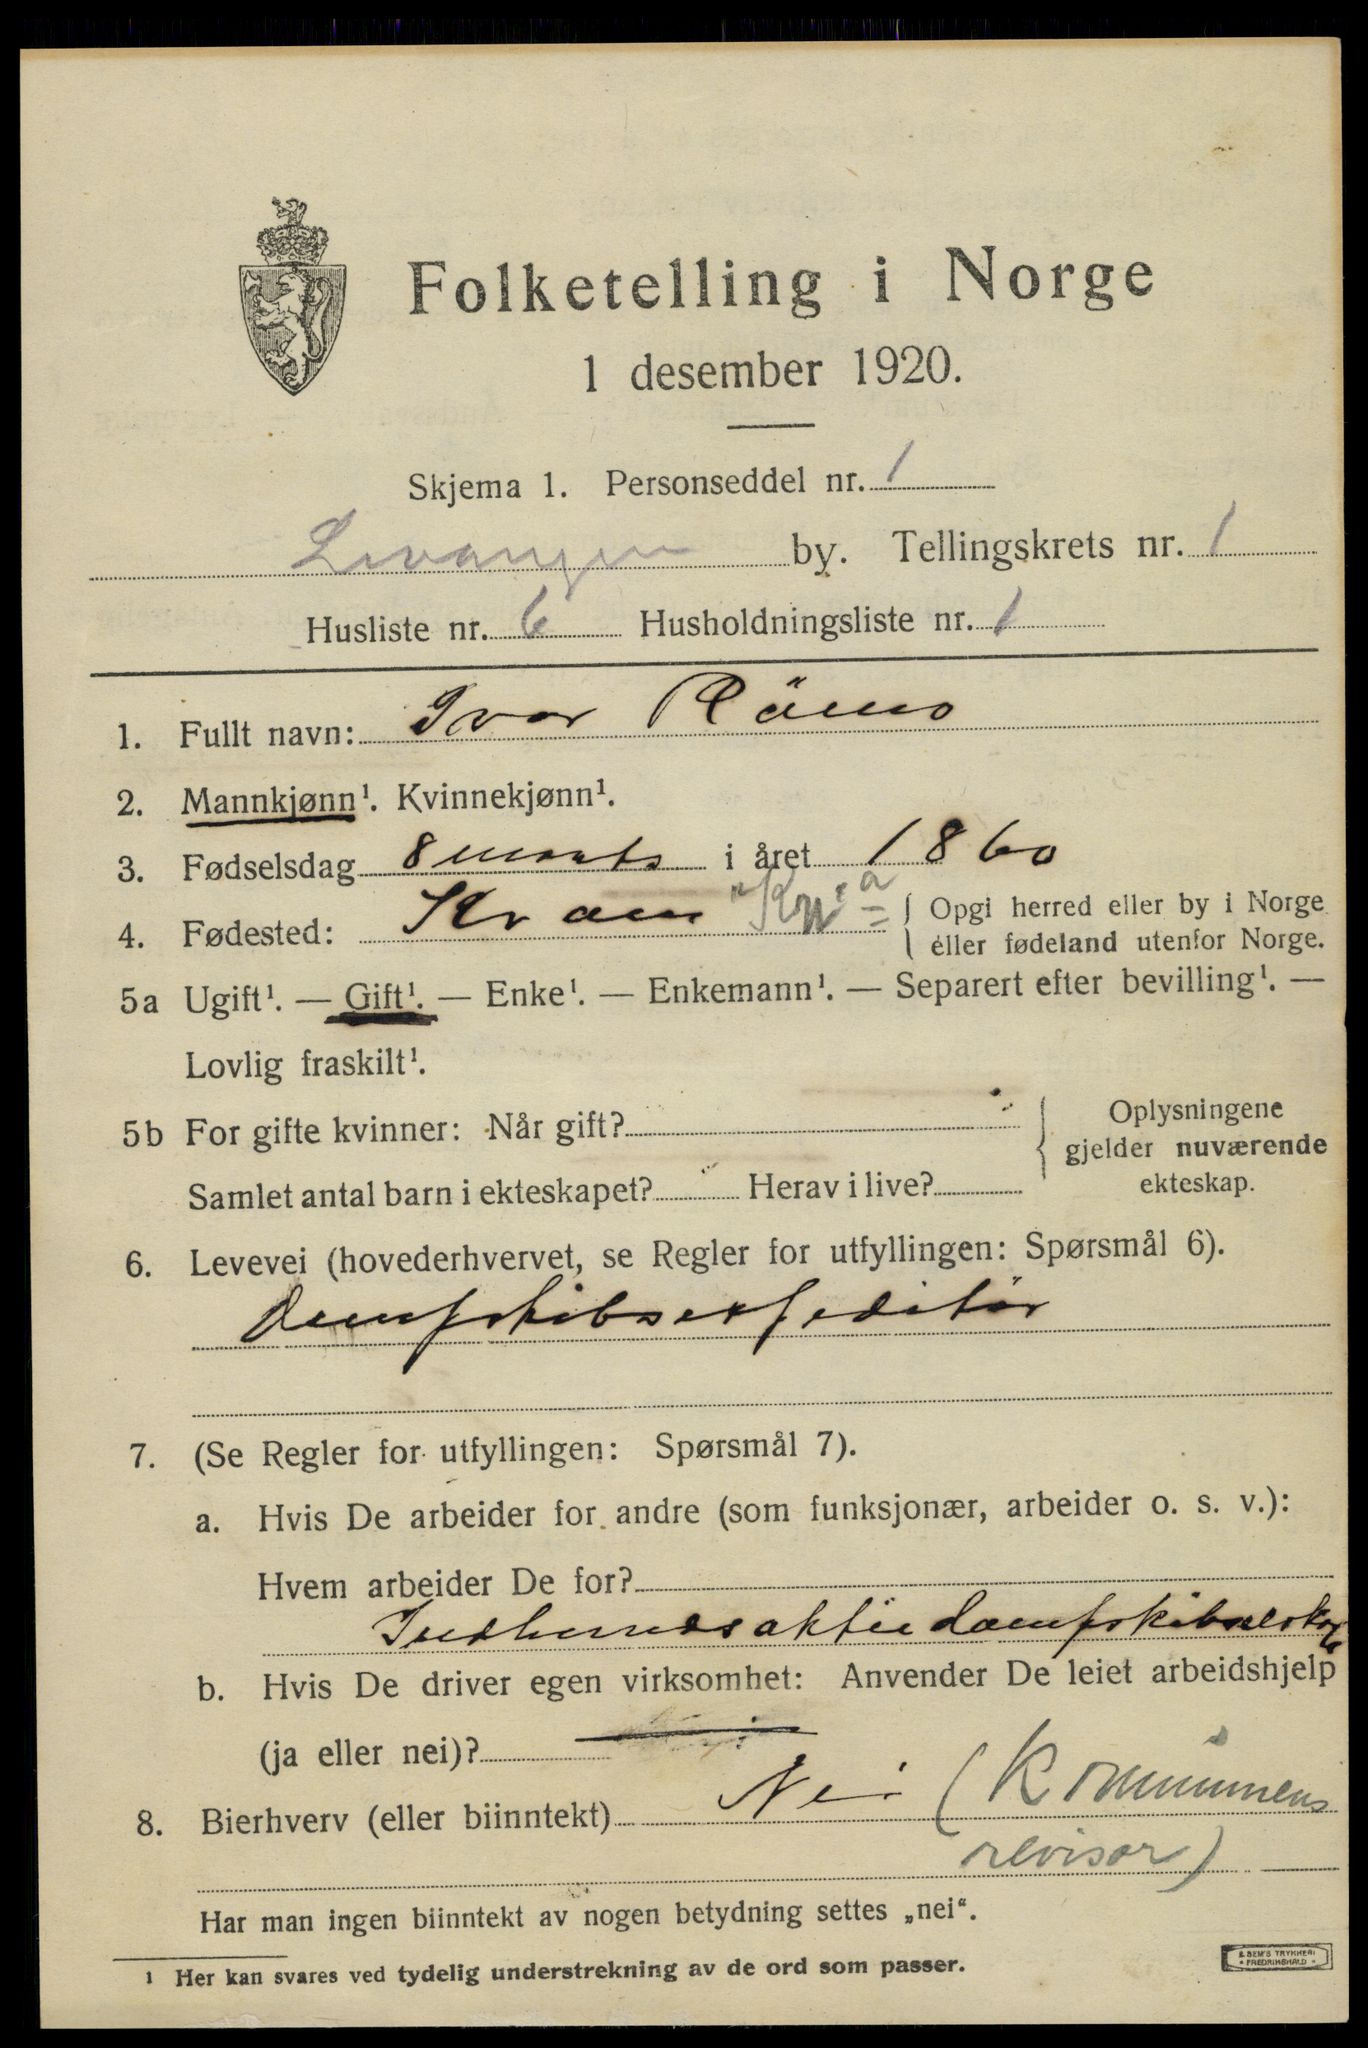 Folketelling i Norge
1 desember 1920.
Skjema 1. Personseddel nr. 1
Levanger by. Tellingskrets nr. 1
Husliste nr. 6 Husholdningsliste nr. 1
1. Fullt navn: Ivar Römo
2. Mannkjønn¹. Kvinnekjønn¹.
3. Fødselsdag 8 marts i året 1860
4. Fødested: { Opgi herred eller by i Norge
eller fødeland utenfor Norge.
5a Ugift¹. — Gift¹. — Enke¹. — Enkemann¹. — Separert efter bevilling¹. —
Lovlig fraskilt¹.
5b For gifte kvinner: Når gift? { Oplysningene
gjelder nuværende
Samlet antal barn i ekteskapet? Herav i live? ekteskap.
6. Levevei (hovederhvervet, se Regler for utfyllingen: Spørsmål 6).
Dampskibsexpeditör
7. (Se Regler for utfyllingen: Spørsmål 7).
a. Hvis De arbeider for andre (som funksjonær, arbeider o. s. v.):
Hvem arbeider De for?
Indherredsaktiedampskibselskab
b. Hvis De driver egen virksomhet: Anvender De leiet arbeidshjelp
(ja eller nei)?
8. Bierhverv (eller biinntekt) Nei (Kommunens
revisor)
Har man ingen biinntekt av nogen betydning settes „nei“.
1 Her kan svares ved tydelig understrekning av de ord som passer.
E SEM'S TRYKKERI
FREDRIKSHALD